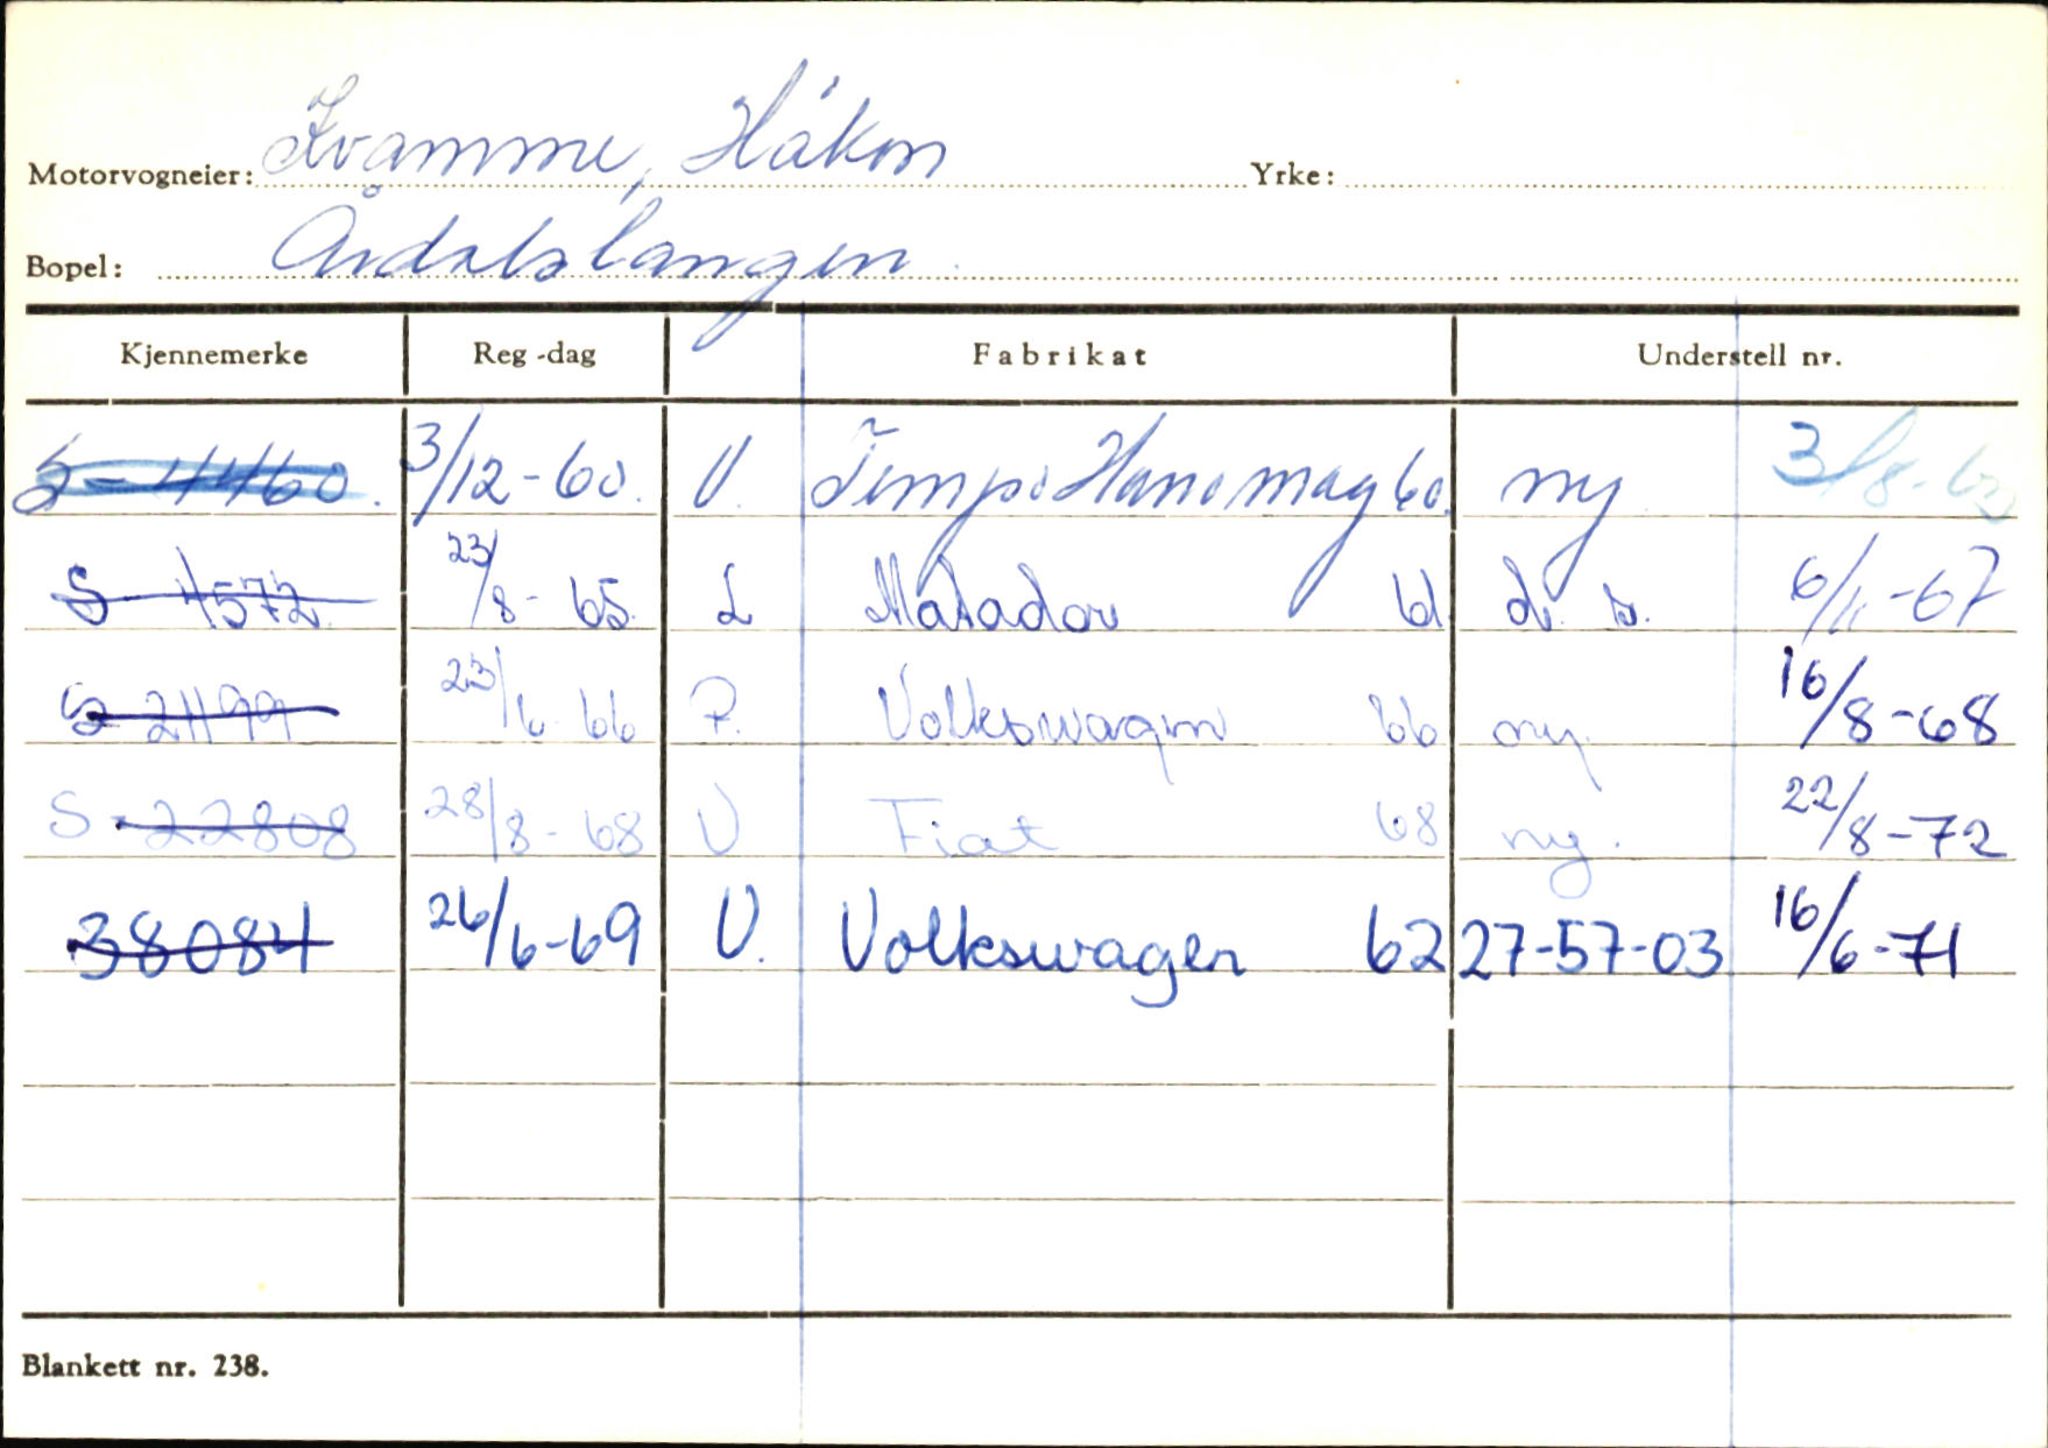 Motorvogneier: Kvamme, Håkon Yrke:
Bopel: Årdalstangen
Kjennemerke Reg-dag Fabrikat Understell nr.
S-4460. 3/12-60. V. Tempo Hanomag 60. ny 3/8-
S-4572 23/8-65. L Matador 61 d. s. 6/11-67
S-21199 23/6 66 P. Volkswagen 66 ny. 16/8-68
S-22808 28/8-68 V Fiat 68 ny. 22/8-72
38084 26/6-69 V. Volkswagen 62 27-57-03 16/6-71
Blankett nr. 238.